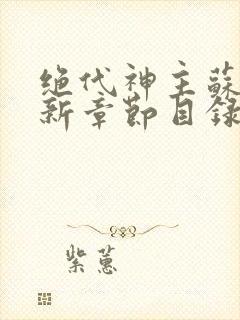 绝代神主蘇
新章節目錄
紫蕙